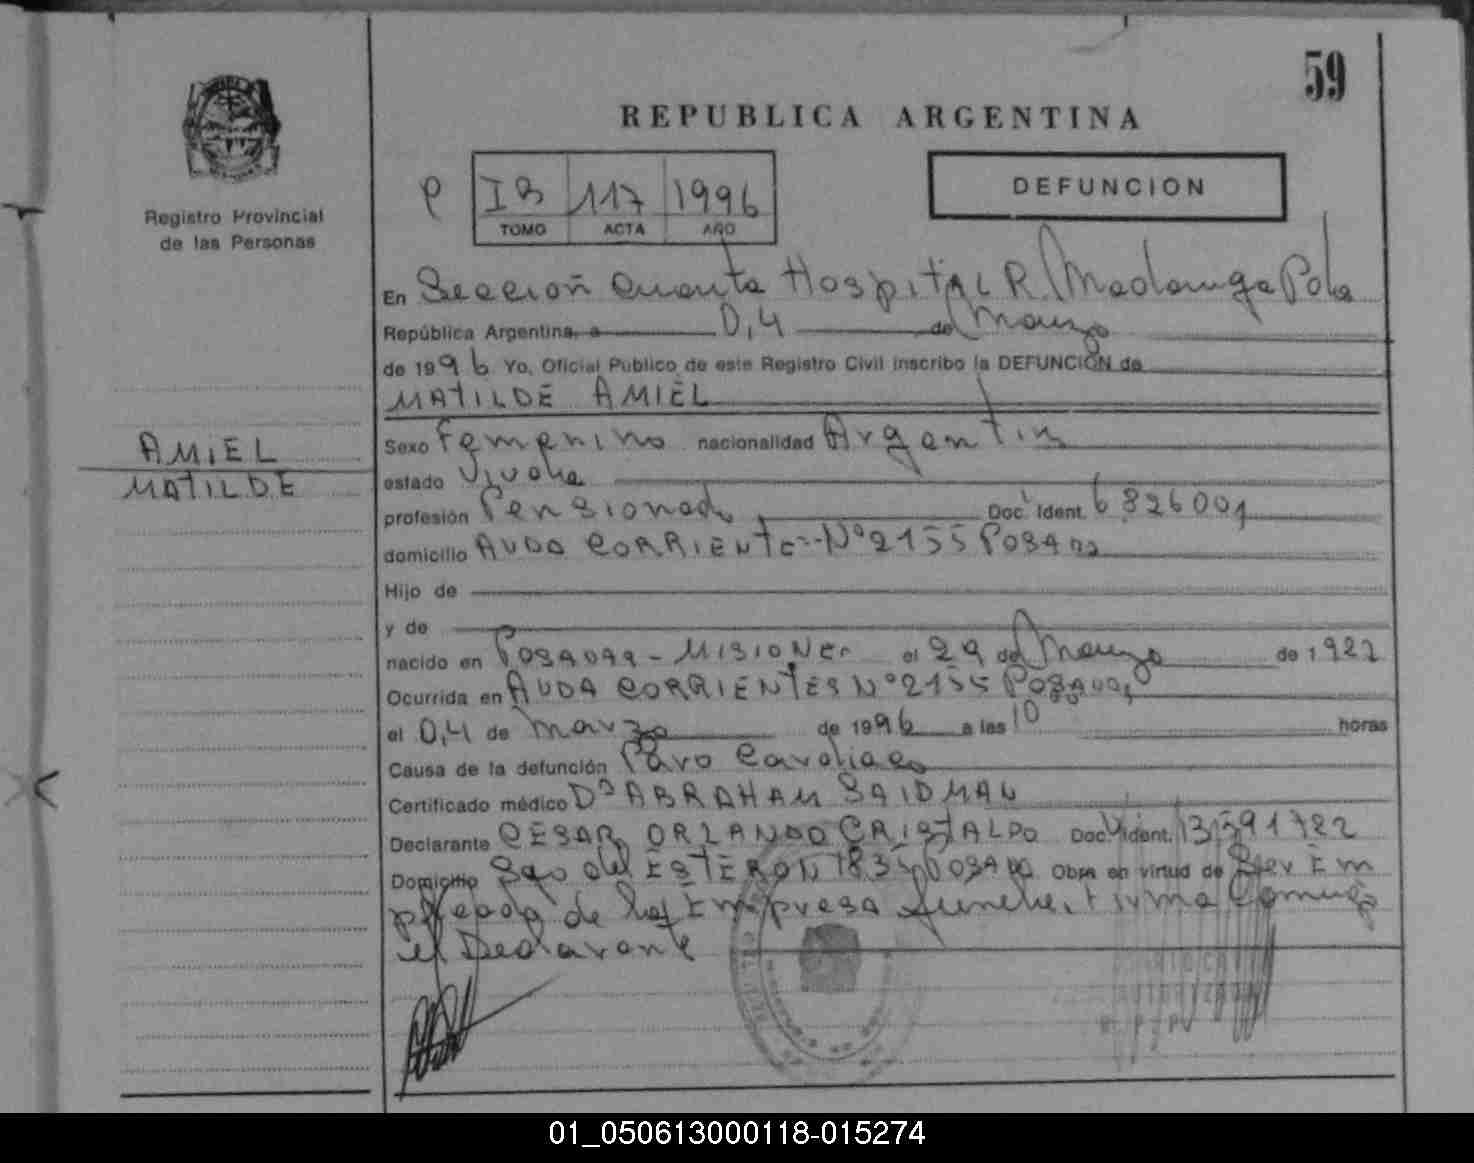 59
REPUBLICA ARGENTINA
DEFUNCION
Registro Provincial
de las Personas
P IB 117 1996
TOMO ACTA AÑO
En Sección Cuarta Hospital R. Madariaga
República Argentina, a 0,4 de Marzo
de 1996 Yo, Oficial Público de este Registro Civil inscribo la DEFUNCIÓN de
MATILDE AMIEL
AMIEL
MATILDE
Sexo Femenino nacionalidad Argentin
estado Viuda
profesión Pensionada Doc. Ident. 6826001
domicilio AVDA CORRIENTES Nº2155 Posadas
Hijo de
y de
nacido en POSADAS - MISIONES el 29 de Marzo de 1922
Ocurrida en AVDA CORRIENTES Nº2155 POSADAS
el 0,4 de Marzo de 1996 a las 10 horas
Causa de la defunción Paro Cardiaco
Certificado médico Dº ABRAHAM SAIDMAN
Declarante CÉSAR ORLANDO CRISTALDO Doc. Ident. 13591722
Domicilio Sgo del ESTERO Nº 1835 POSADAS Obra en virtud de Ser Em
pleado de la Empresa funebre, firma Conmigo
el Declarante
01_050613000118-015274